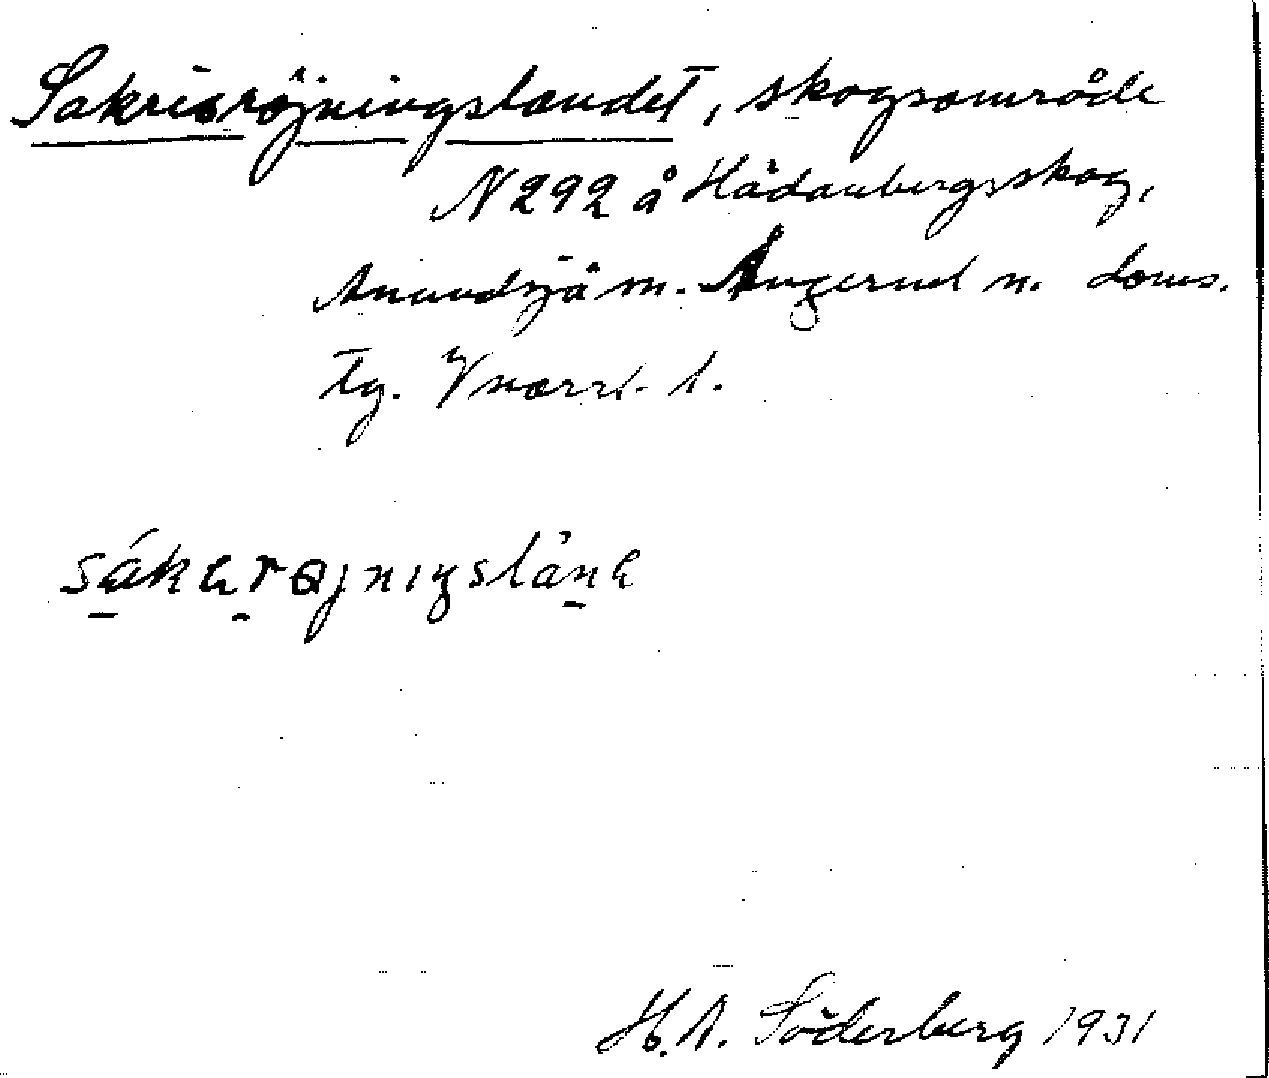 Sakrisröjningslandet, skogsområde
N 292 å Hädanbergsskog,
Anundsjö m. Ångerml n. doms.
tg. V narrl. l.
sákɐrøjnɪŋslånɐ
H. A. Söderberg 1931